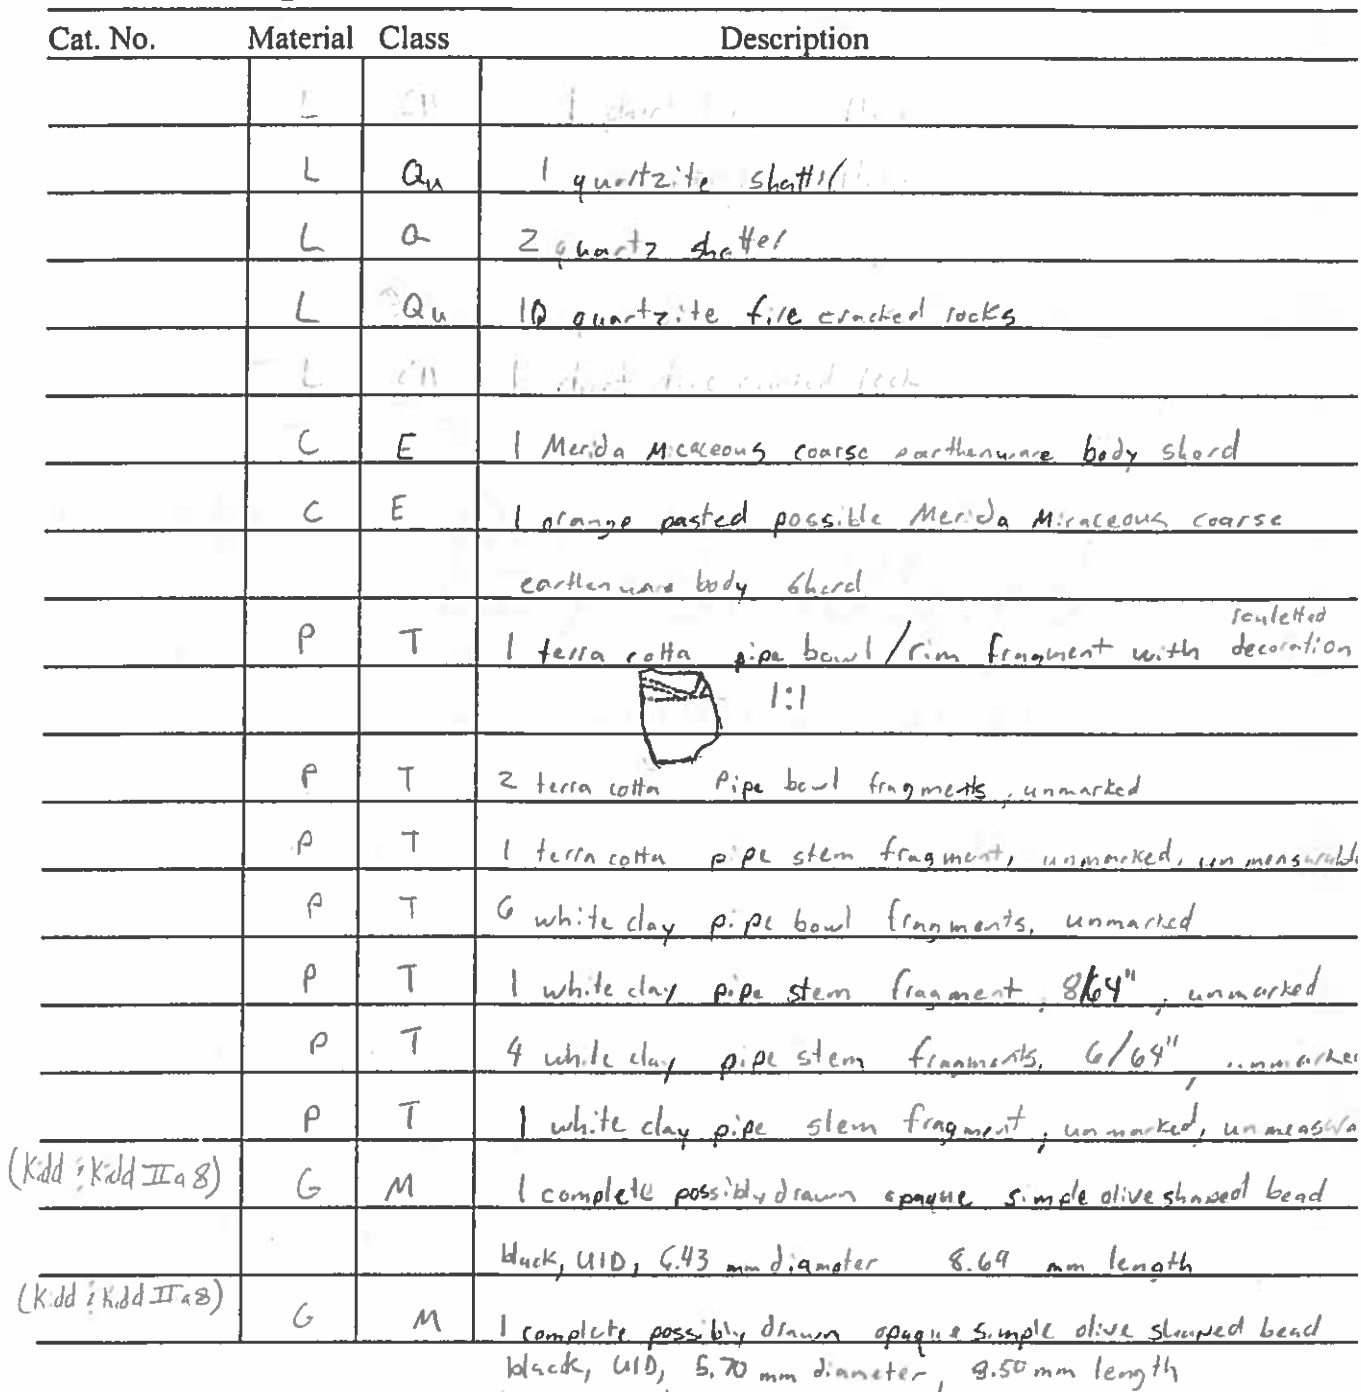 Cat. No. Material Class Description
L CH 1 chert
L Qu 1 quartzite shatter
L Q 2 quartz shatter
L Qu 10 quartzite fire cracked rocks
L CH 1 chert fire cracked rock
C E 1 Merida Micaceous coarse earthenware body sherd
C E 1 orange pasted possible Merida Micaceous coarse
earthenware body sherd
rouletted
P T 1 terra cotta pipe bowl/rim fragment with decoration
1:1
P T 2 terra cotta pipe bowl fragments, unmarked
P T 1 terra cotta pipe stem fragment, unmarked, unmeasurable
P T 6 white clay pipe bowl fragments, unmarked
P T 1 white clay pipe stem fragment, 8/64", unmarked
P T 4 white clay pipe stem fragments, 6/64", unmarked
P T 1 white clay pipe stem fragment, unmarked, unmeasura
(Kidd & Kidd IIa8) G M 1 complete possibly drawn opaque simple olive shaped bead
black, UID, 6.43 mm diameter 8.69 mm length
(Kidd & Kidd IIa8) G M 1 complete possibly drawn opaque simple olive shaped bead
black, UID, 5.70 mm diameter, 8.50 mm length